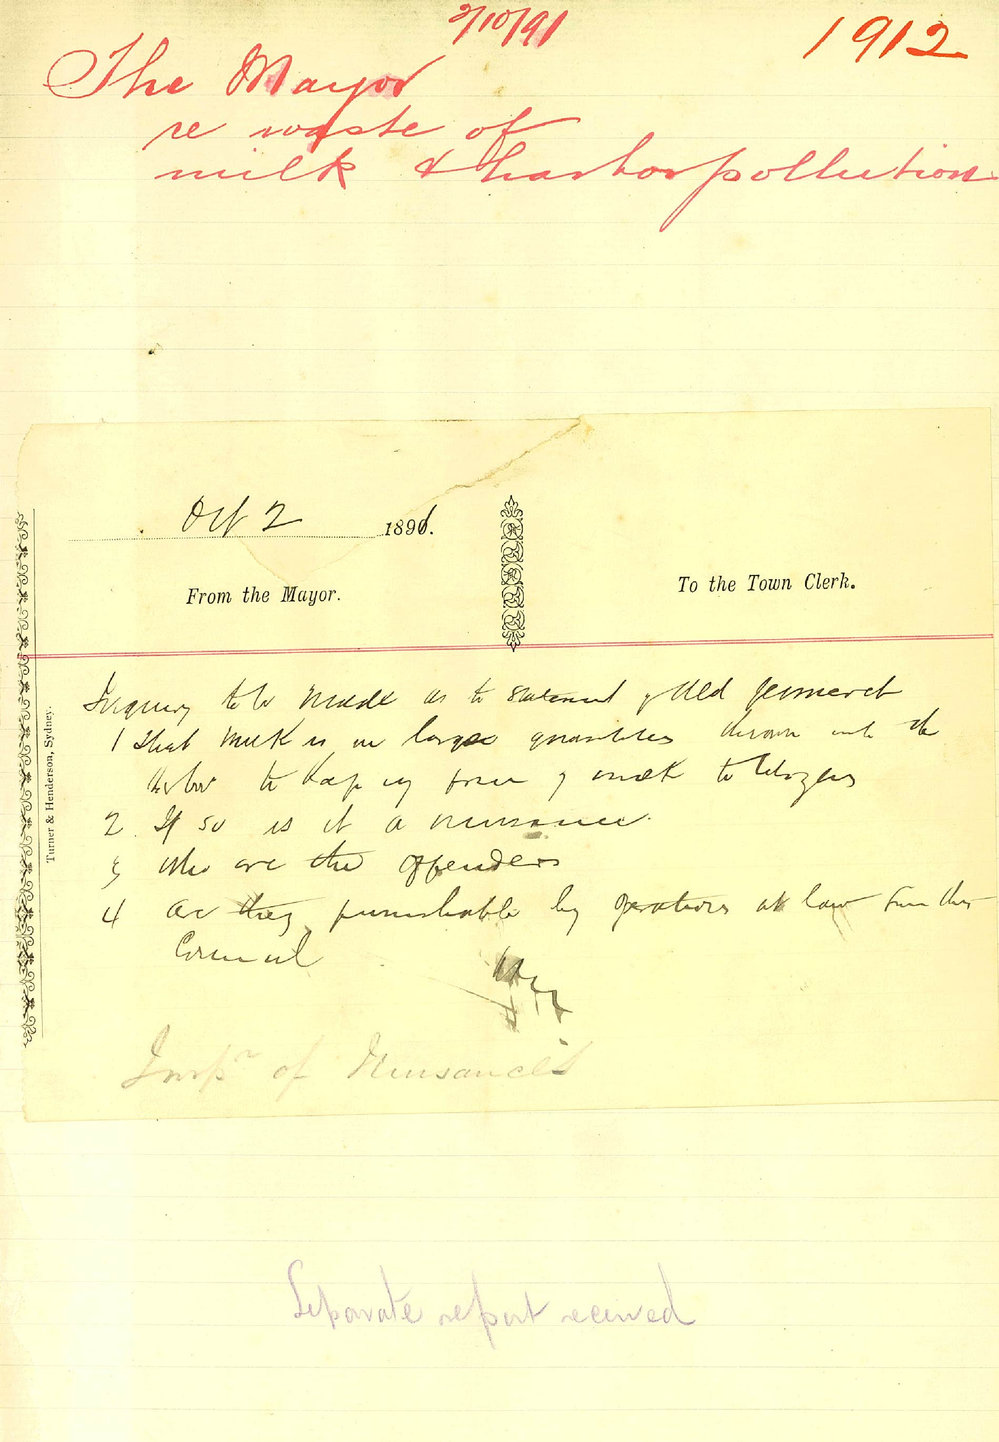 2/10/91
1912
The Mayor
re waste of
milk & harbor pollution
Oct 2 1891.
From the Mayor.
To the Town Clerk.
Turner & Henderson, Sydney.
Inquiry to be made as to statement of Ald
1 That milk is in large quantities thrown into the
Harbor to keep up price of milk to Citizens
2. If so is it a nuisance.
3 Who are the offenders
4 Are they punishable by operations at law from this
Council
Inspr of Nuisances
Separate report received